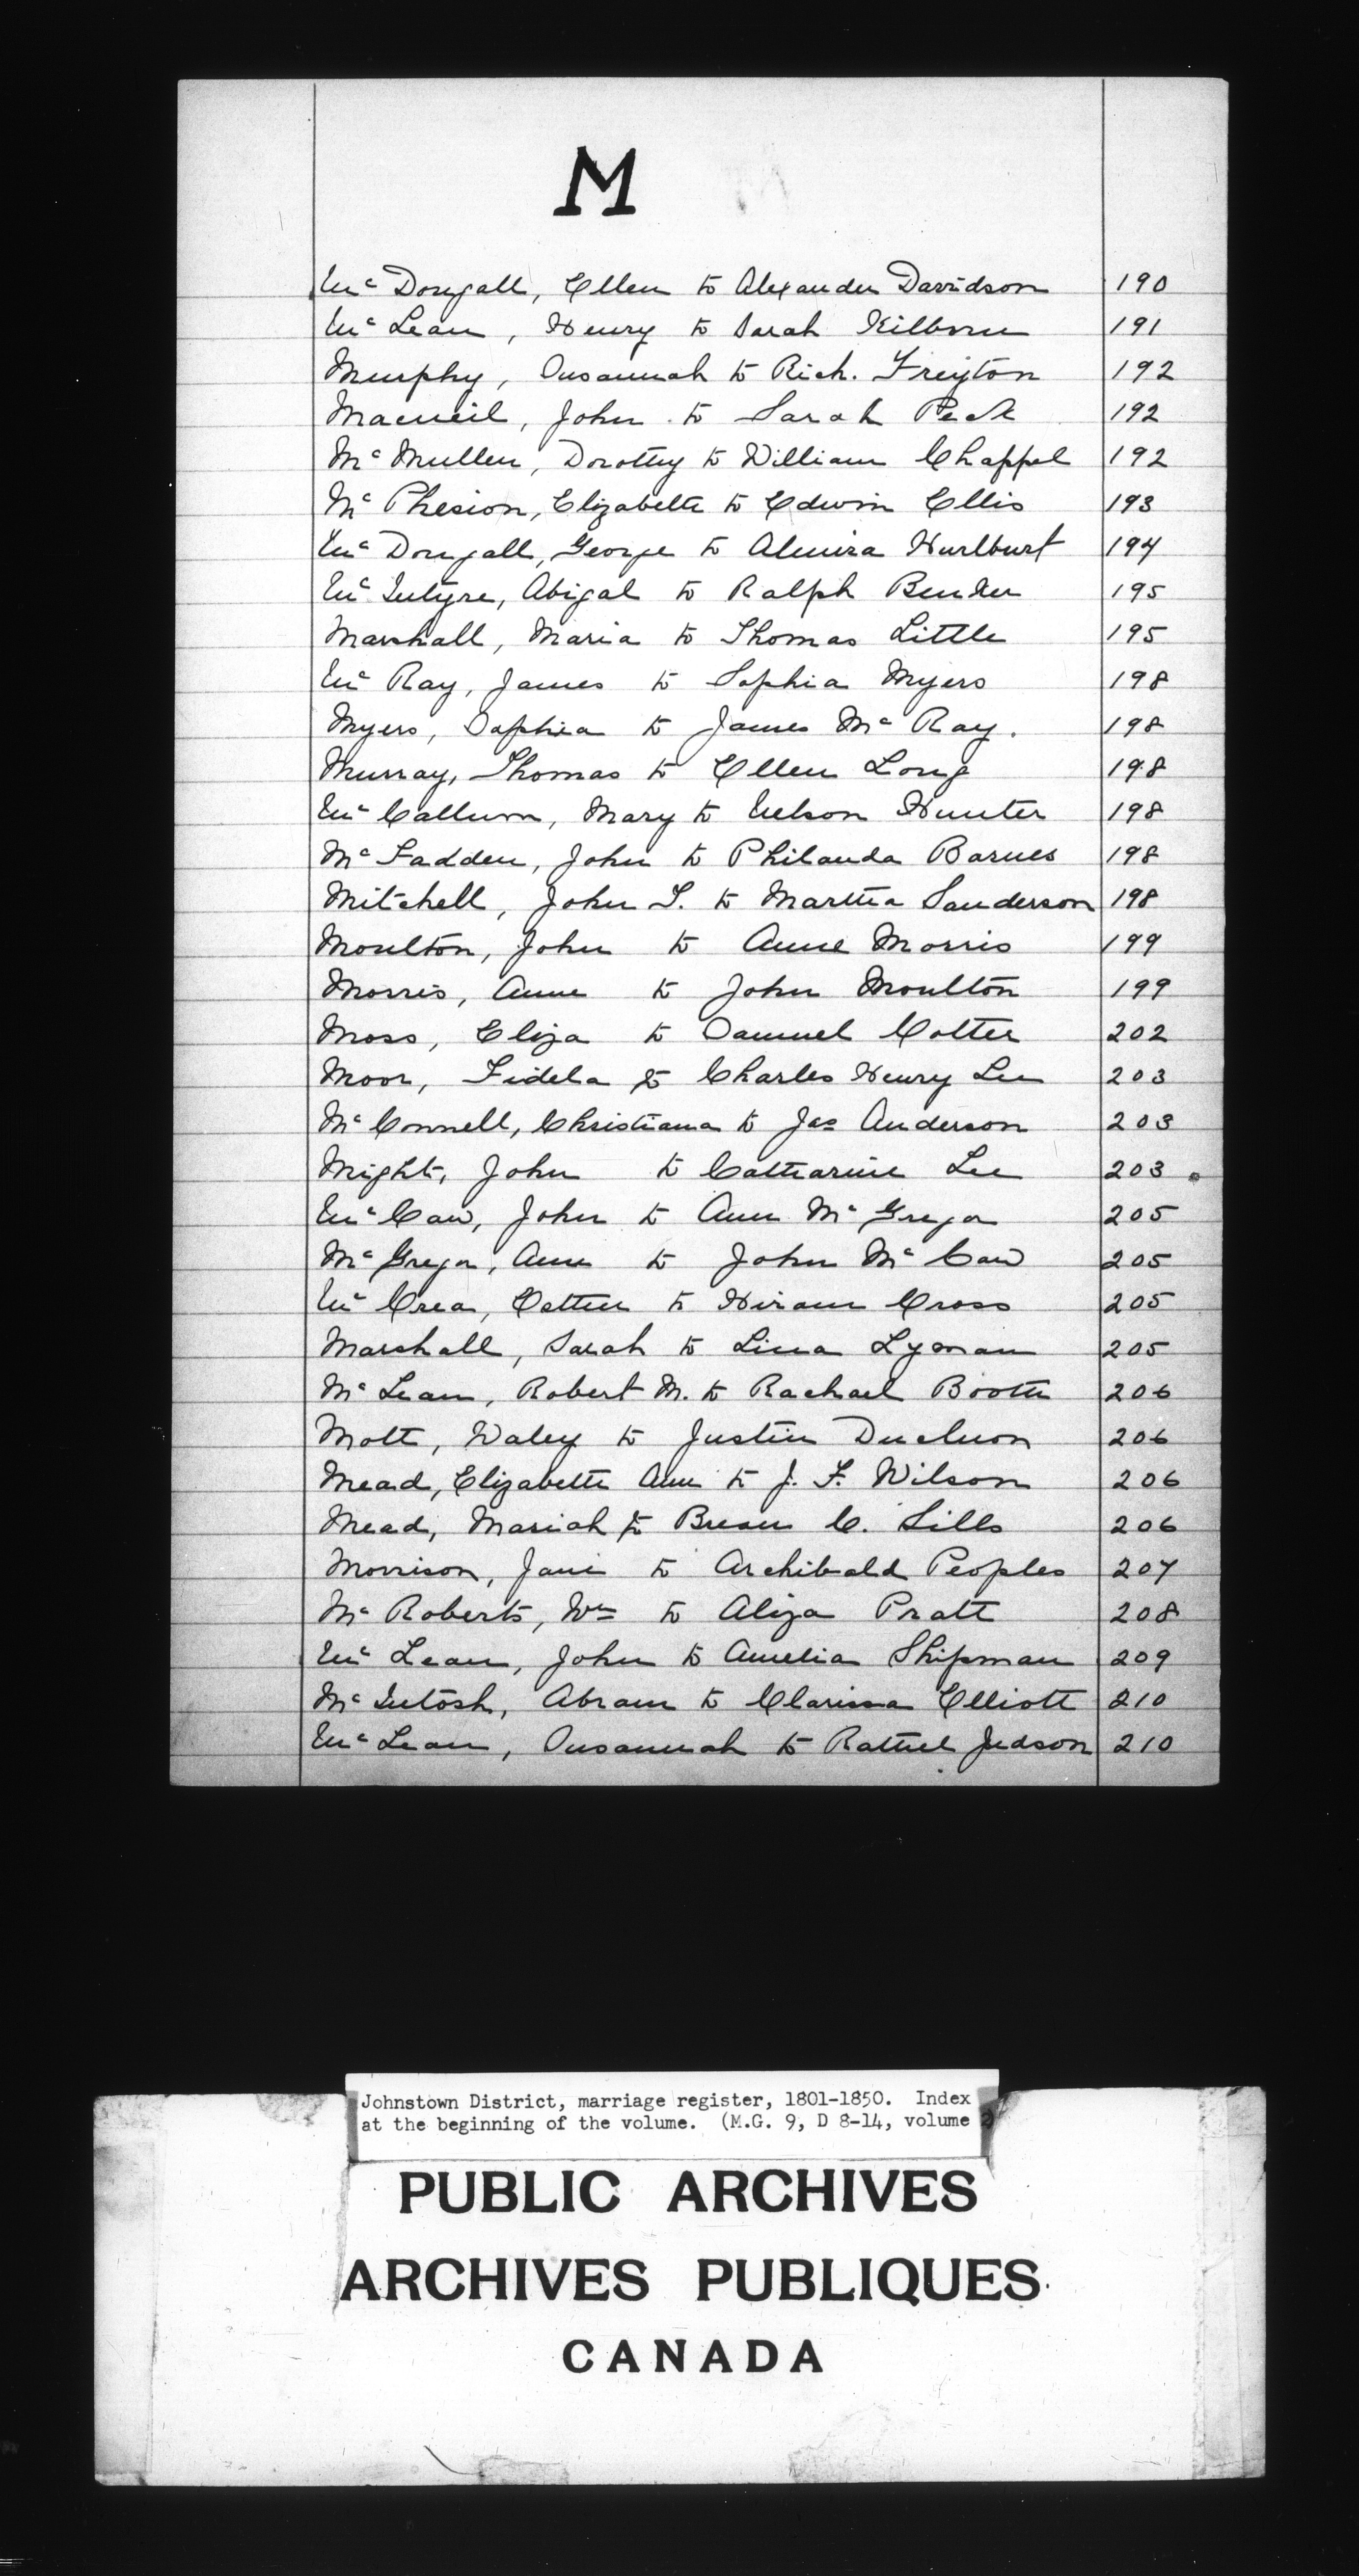 M
McDougall, Ellen to Alexander Davidson 190
McLean, Henry to Sarah Kilborn 191
Murphy, Susannah to Rich. Freyton 192
Macneil, John to Sarah Peck 192
McMullen, Dorothy to William Chappel 192
McPhesion, Elizabeth to Edwin Ellis 193
McDougall, George to Almira Hurlburt 194
McIntyre, Abigal to Ralph 195
Marshall, Maria to Thomas Little 195
McRay, James to Sophia Myers 198
Myers, Sophia to James McRay. 198
Murray, Thomas to Ellen Long 198
McCallum, Mary to Nelson Hunter 198
McFadden, John to Philanda Barnes 198
Mitchell, John S. to Martha Sanderson 198
Moulton, John to Anne Morris 199
Morris, Anne to John Moulton 199
Moss, Eliza to Samuel Cotter 202
Moor, Fidela to Charles Henry Lee 203
McConnell, Christiana to Jas Anderson 203
Might, John to Catharine Lee 203
McCaw, John to Ann McGregor 205
McGregor, Ann to John McCaw 205
McCrea, to Hiram Cross 205
Marshall, Sarah to Lina Lyman 205
McLean, Robert M. to Rachael Booth 206
Mott, to Justin 206
Mead, Elizabeth Ann to J. F. Wilson 206
Mead, Mariah to C. Sills 206
Morrison, Jane to Archibald Peoples 207
McRoberts, Wm to Aliza Pratt 208
McLean, John to Amelia Shipman 209
McIntosh, Abram to Clarissa Elliott 210
McLean, Susannah to Judson 210
Johnstown District, marriage register, 1801-1850. Index
at the beginning of the volume. (M.G. 9, D 8-14, volume 2)
PUBLIC ARCHIVES
ARCHIVES PUBLIQUES
CANADA